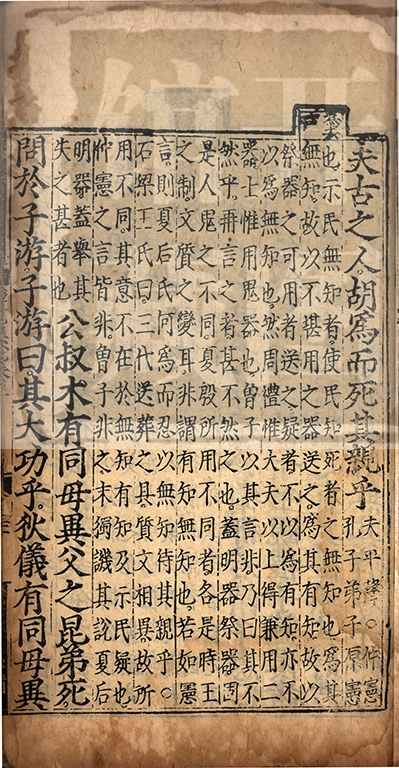 夫古之人胡爲而死其親乎 夫平聲○仲憲
孔子弟子原憲
也示民無知者使民知死者之無知也爲其
無知故以不堪用之器送之爲其有知故以
祭器之可用者送之疑者不以爲有知亦不
以爲無知也然周禮惟大夫以上得兼用二
器士惟用鬼器也曾子以其言非乃曰其不
然乎再言之者甚不然之也蓋明器祭器固
是人鬼之不同夏殷所用不同者各是時王
之制文質之變耳非謂有知無知也若如憲
言則夏后氏何爲而忍以無知待其親乎○
石梁王氏曰三代送葬之具質文相異故所
用不同其意不在於無知有知及示民疑也
仲憲之言皆非曾子非之末獨譏其說夏后
明器蓋舉其
失之甚者也
公叔木有同母異父之昆弟死
問於子游子游曰其大功乎狄儀有同母異